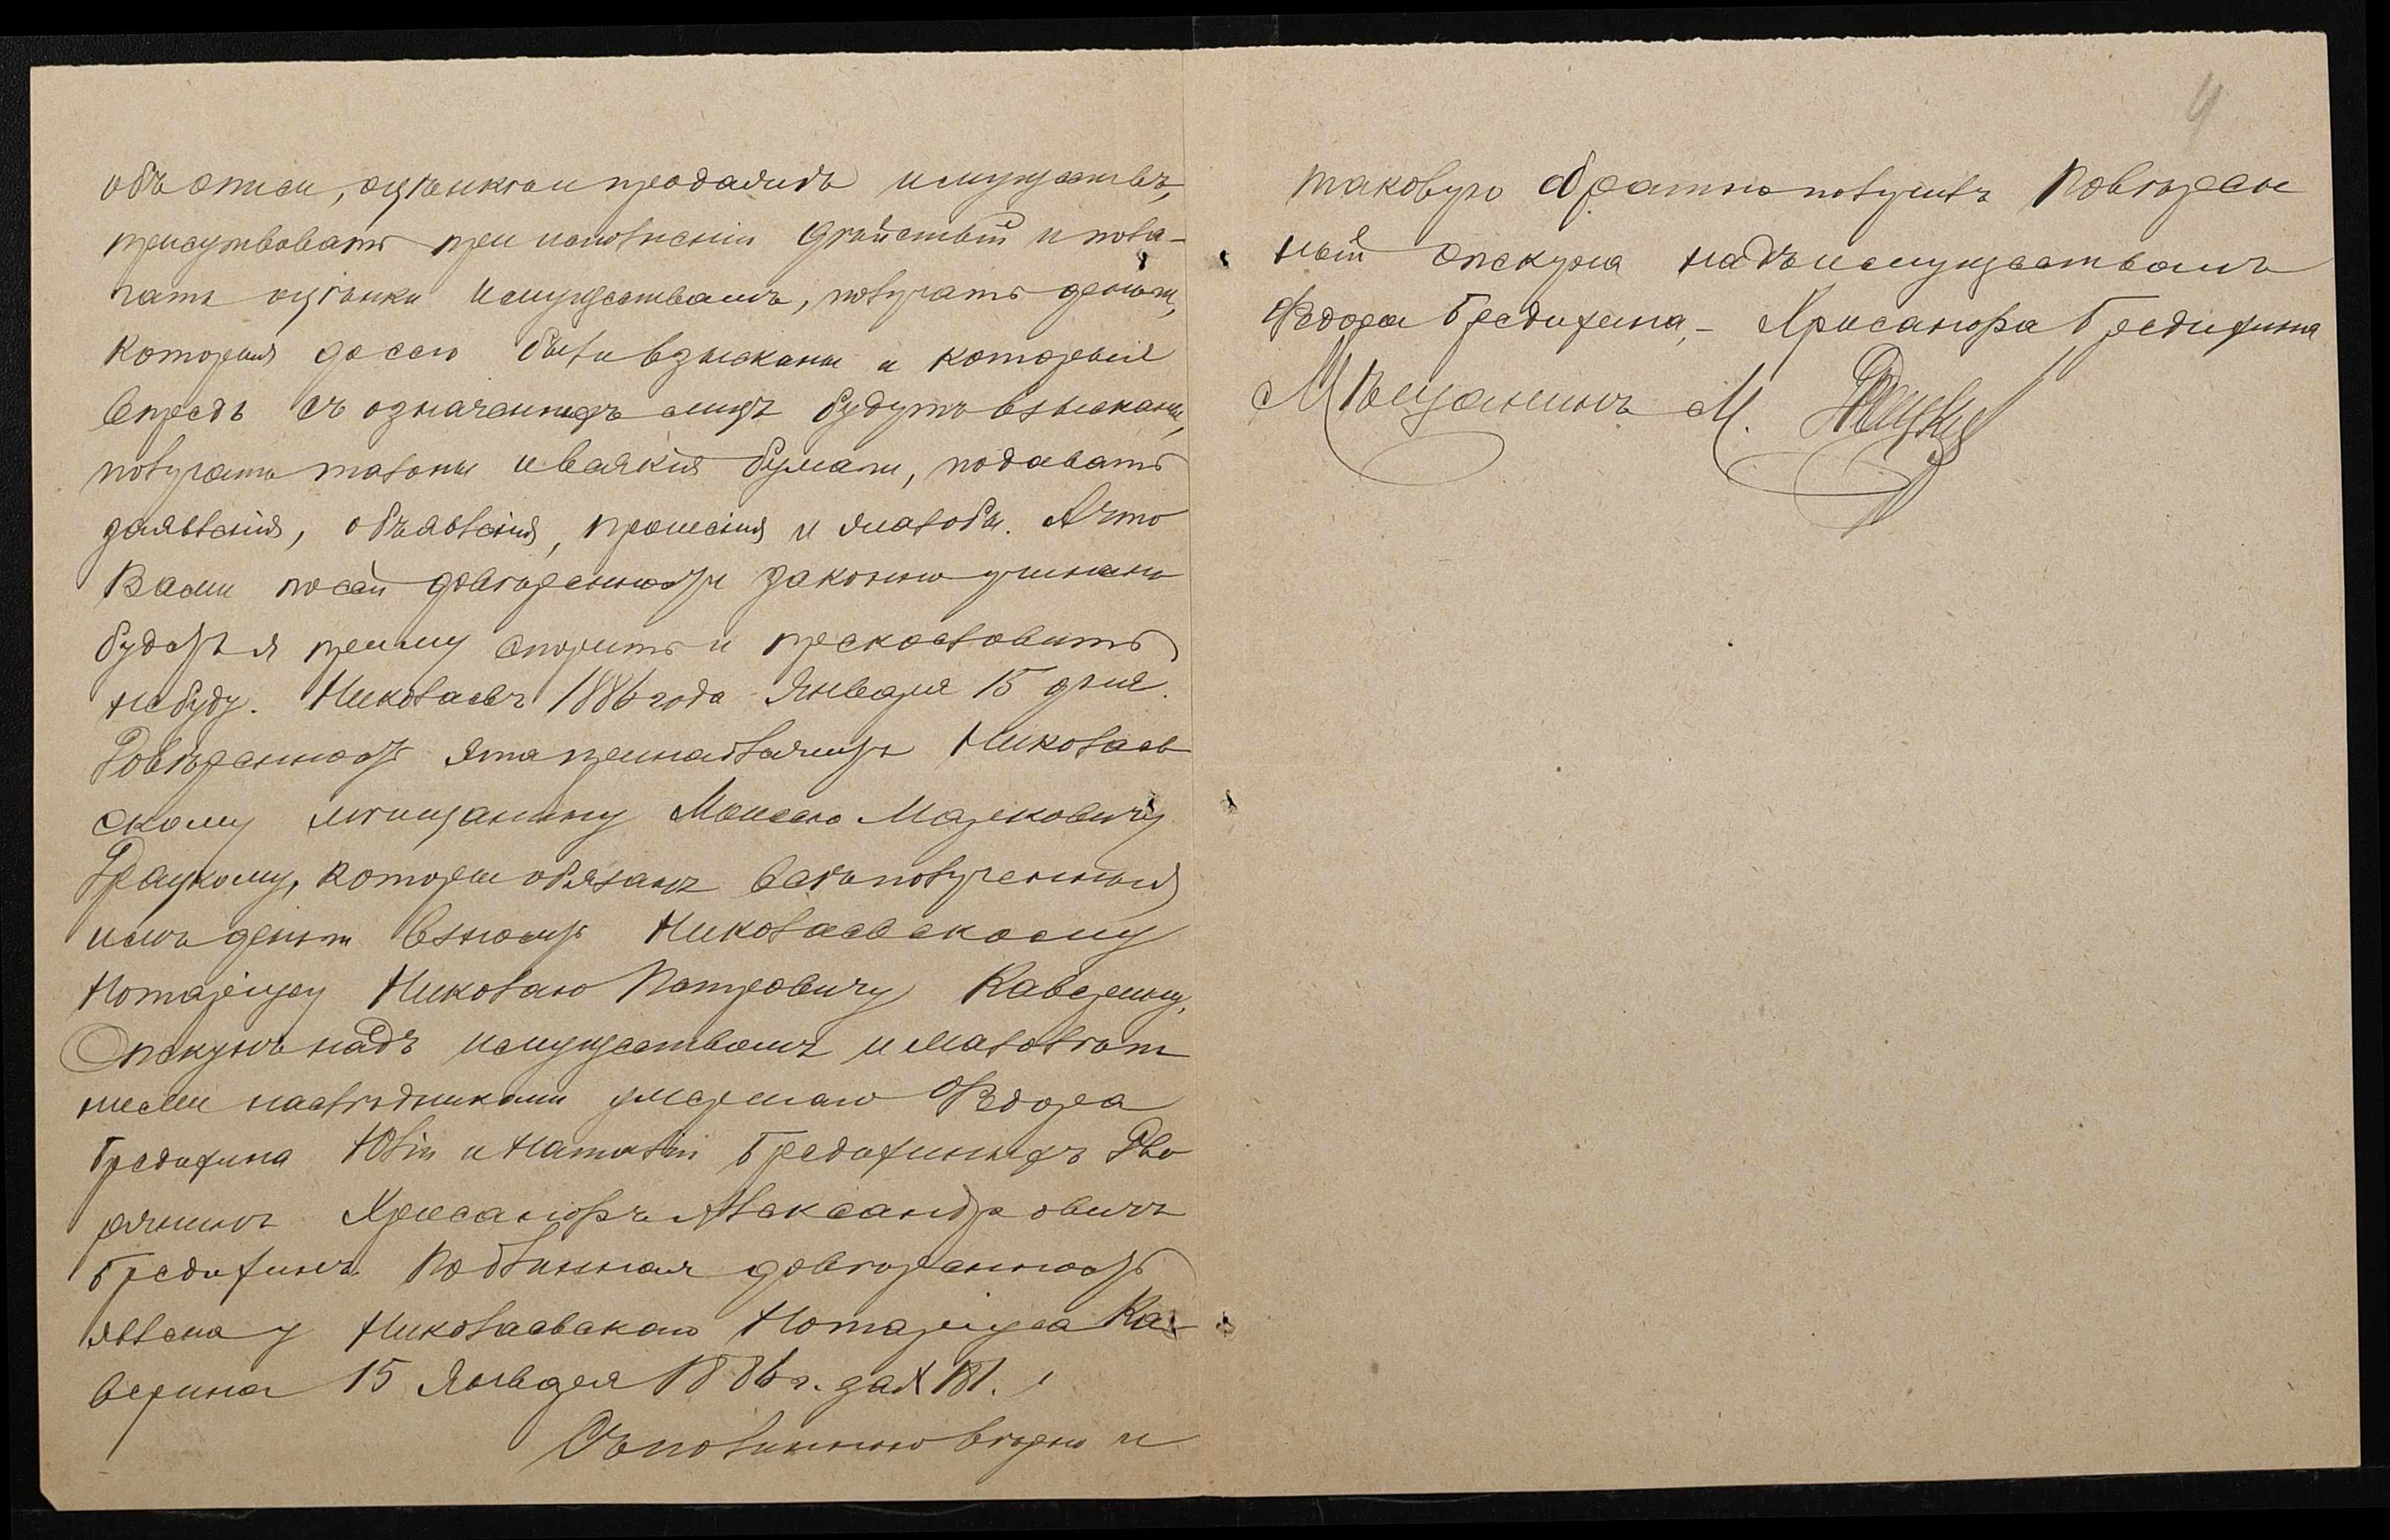 объ описи, оцѣнкѣ и продажѣ имуществъ,
присутвовать при исполненіи дѣйствій и полу-
чать оцѣнки имуществамъ, получать деньги,
которыя досего были взысканы и которыя
впредь съ означенныхъ лицъ будутъ взысканы,
получать талоны и всякія бумаги, подавать
заявленія, объявленія, прошенія и жалобы. А что
Вами по сей довѣренности законно учинено
будетъ я приму спорить и прекословить
не буду. Николаевъ 1886 года Января 15 дня.
Довѣренность эта принадлежитъ Николаев
скому мѣщанину Моисею Марковичу
Драцкому, которы обязанъ всѣ полученныя
имъ деньги вносить Николаевскому
Нотаріусу Николаю Петровичу Каверину.
Опекунъ надъ имуществомъ и малолѣт
ними наслѣдниками умершаго Ѳедора
Бредихина Юліи и Наталіи Бредихиныхъ Дво
рянинъ Хрисанфъ Александровичъ
Бредихинъ. Подлинная довѣренность
явлена у Николаевскаго Нотаріуса Ка-
верина 15 Января 1886 г. за № 181.
Съ подлинною вѣрно и
4
таковую обратно получилъ Повѣрен
ный опекуна надъ имуществомъ
Ѳедора Бредихина, - Хрисанфа Бредихина
Мѣщанинъ М. Драцкій